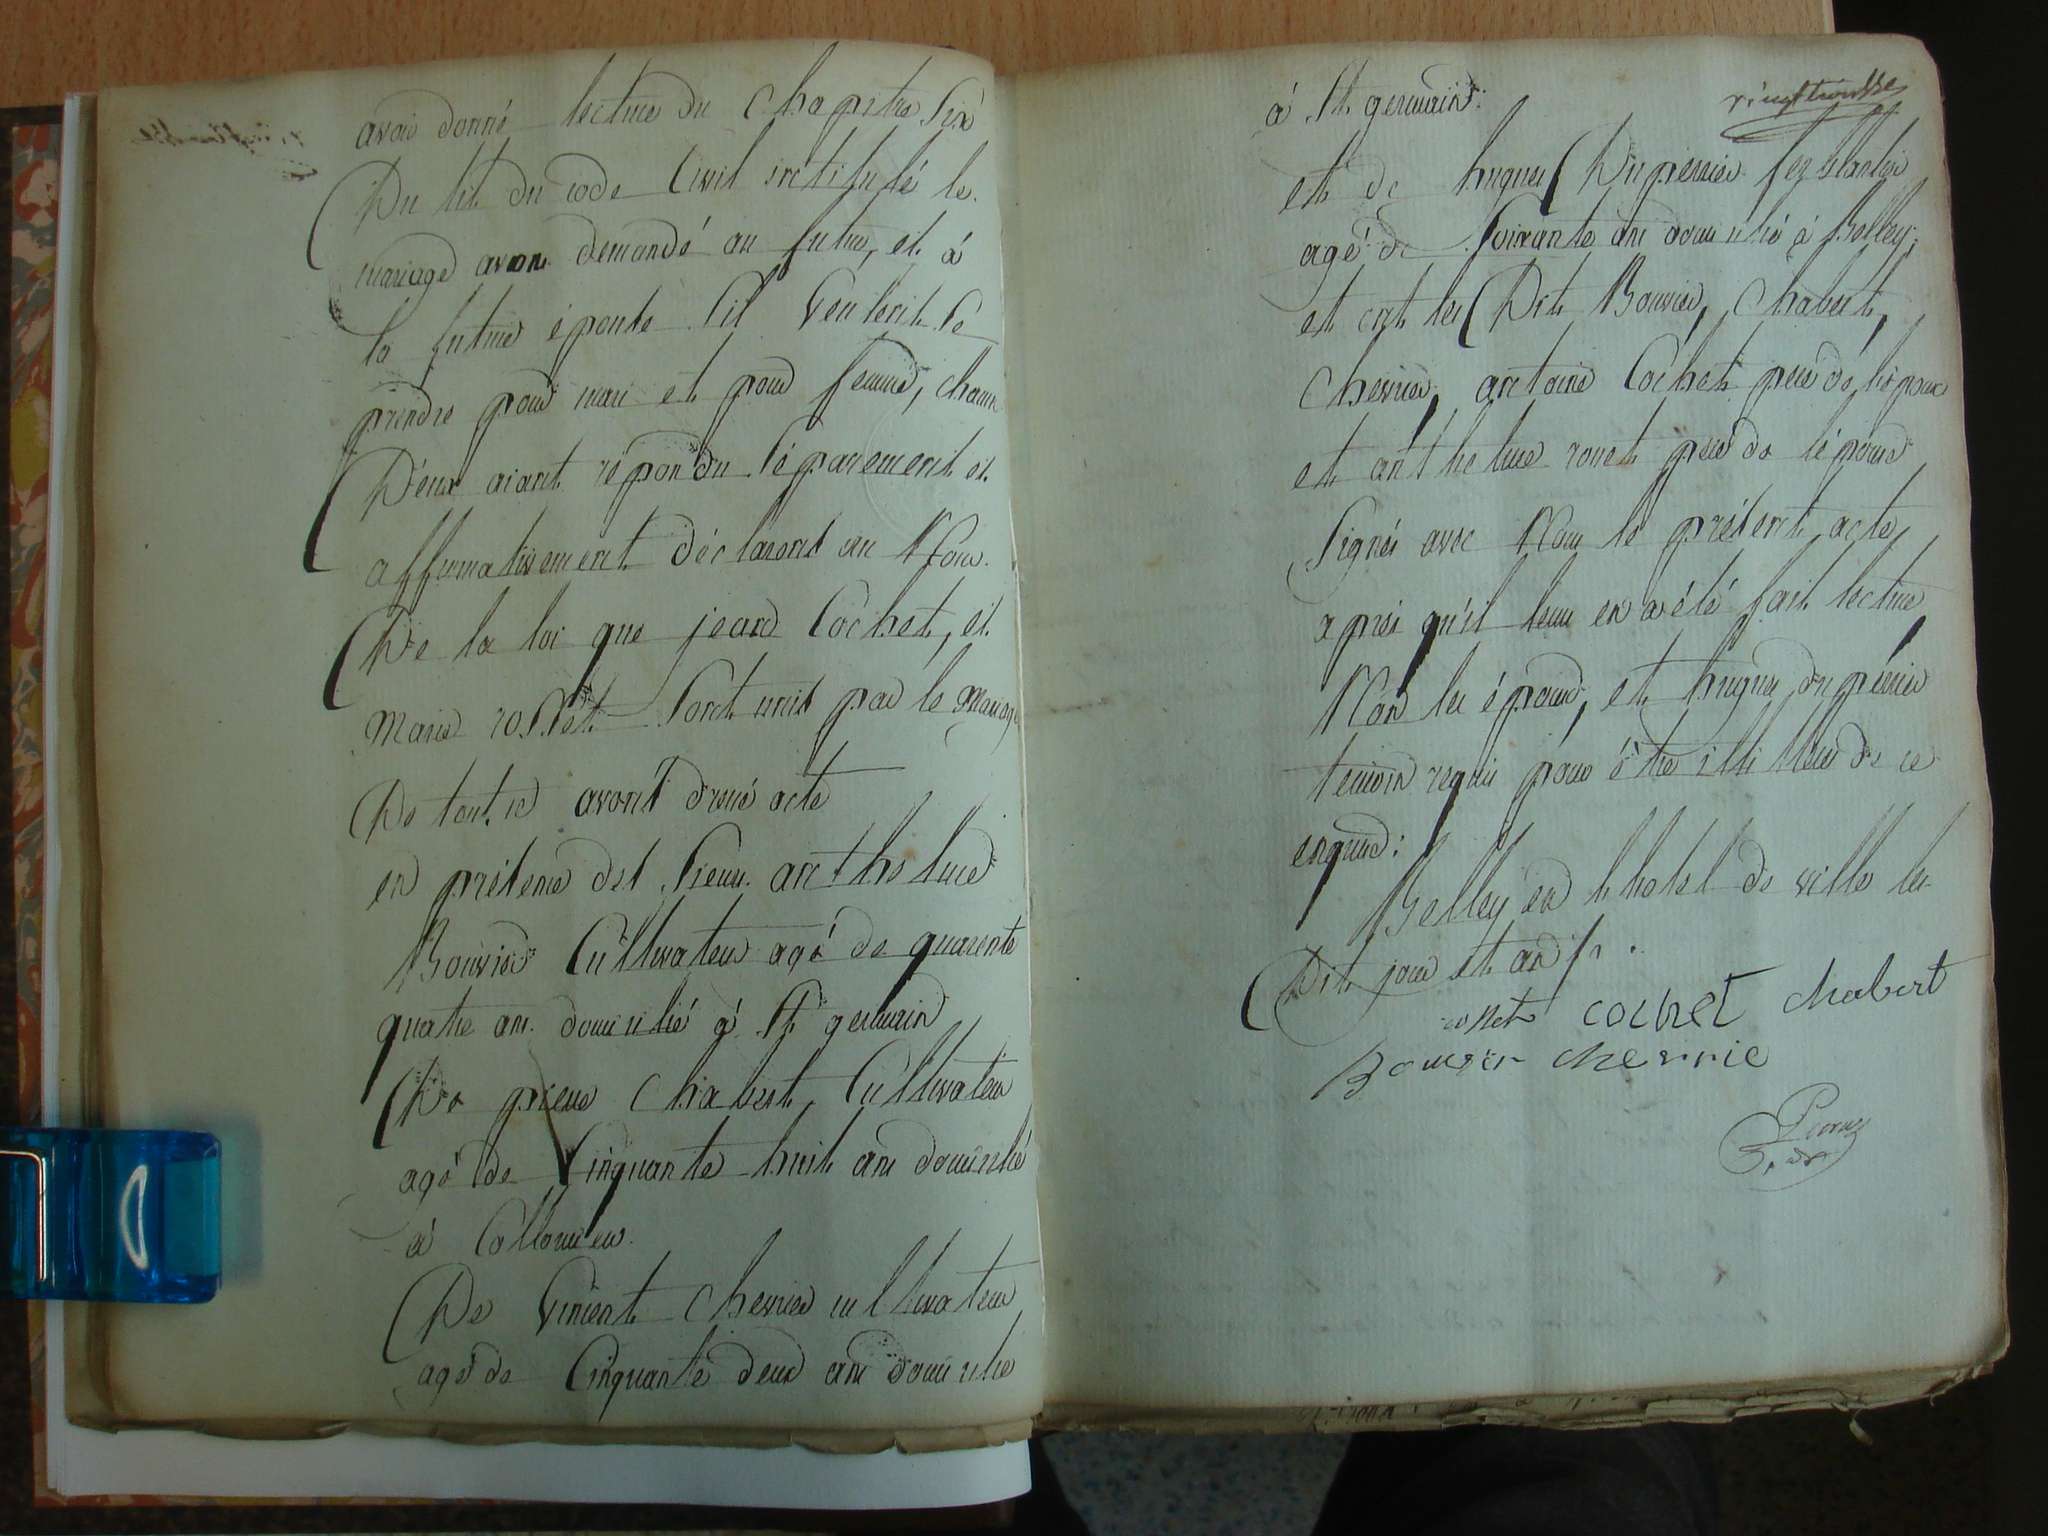 avoir donné lecture du Chapitre Six
Du tit du code Civil intitulé le
mariage avon demandé au futur, et à
la future épouse S'il veulent Se
prendre pour mari et pour femme, chacun
D'eux aiant répondu Séparement et
affirmativement déclarons au Nom
De la loi que jean Cochet, et
Marie rosset Sont unis par le Mariage
De tout ce avons dressé acte
en présence des Sieur anthelme
Bouvier Cultivateur agé de quarente
quatre ans domicilié à St germain
De pierre Chabert, Cultivateur
agé de Cinquante huit ans domicilié
à Collomieu
De Vincent Chervier cultivateur
agé de Cinquante deux ans domicilié
à St germain
et de hugues Duperrier ferblantier
agé de Soixante ans domicilié à Belley,
et ont les Dits Bouvier, Chabert,
Chervier, antoine Cochet pere de l'époux
et anthelme rosset pere de l'épouse
Signés avec Nous le présent acte,
apres qu'il leur en a été fait lecture
Non les époux, et hugues duperrier
temoin requis pour être illitteré de ce
enquis:
Belley en l'hotel de ville les
Dit jour et an
rosset cochet chabert
Bouvier chervie